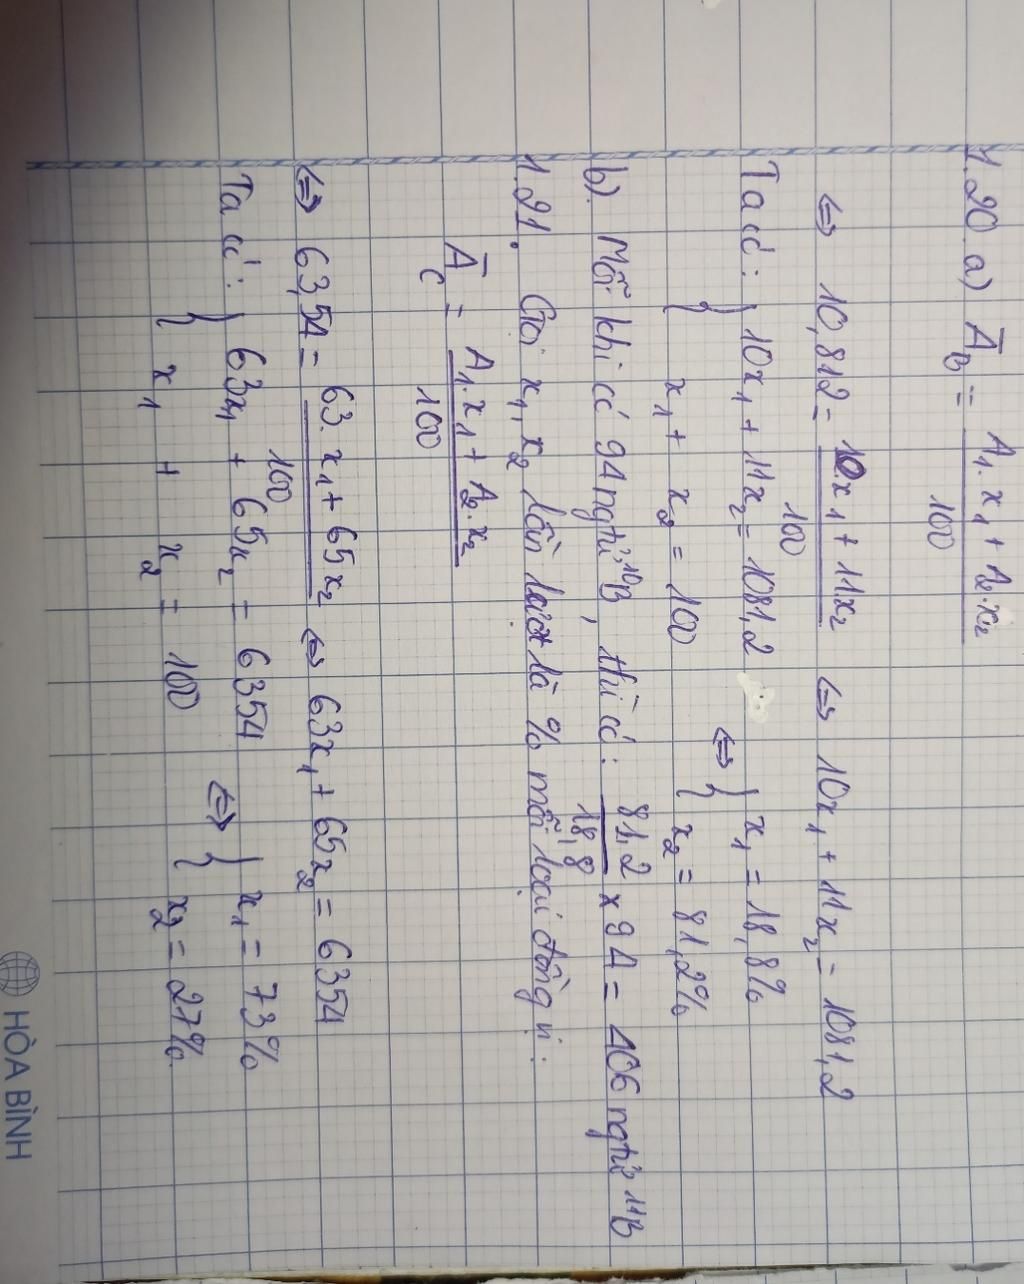 1.20 a) A̅_B = A₁.x₁ + A₂.x₂
100
⇔ 10,812 = 10x₁ + 11x₂ ⇔ 10x₁ + 11x₂ = 1081,2
100
Ta có: { 10x₁ + 11x₂ = 1081,2 ⇔ { x₁ = 18,8%
{ x₁ + x₂ = 100 { x₂ = 81,2%
b). Mỗi khi có 94 ngtử ¹⁰B, thì có: 81,2 × 94 = 406 ngtử ¹¹B
18,8
1.21. Gọi x₁, x₂ lần lượt là % mỗi loại đồng vị.
A̅_C = A₁.x₁ + A₂.x₂
100
⇔ 63,54 = 63.x₁ + 65x₂ ⇔ 63x₁ + 65x₂ = 6354
100
Ta có: { 63x₁ + 65x₂ = 6354 ⇔ { x₁ = 73%
{ x₁ + x₂ = 100 { x₂ = 27%
HÒA BÌNH